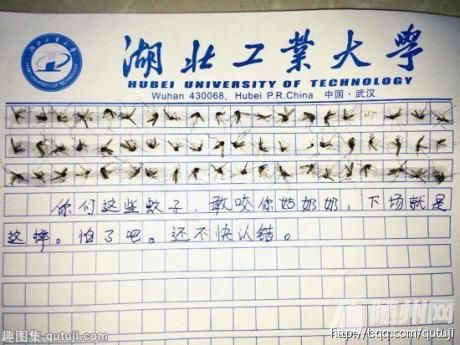 湖北工業大學
HUBEI UNIVERSITY OF TECHNOLOGY
Wuhan 430068, Hubei P.R.China 中国·武汉
你们这些蚊子，敢咬你姑奶奶，下场就是
这样。怕了吧。还不快认错。
随州网
趣图集·qutuji.com
http://t.qq.com/qutuji